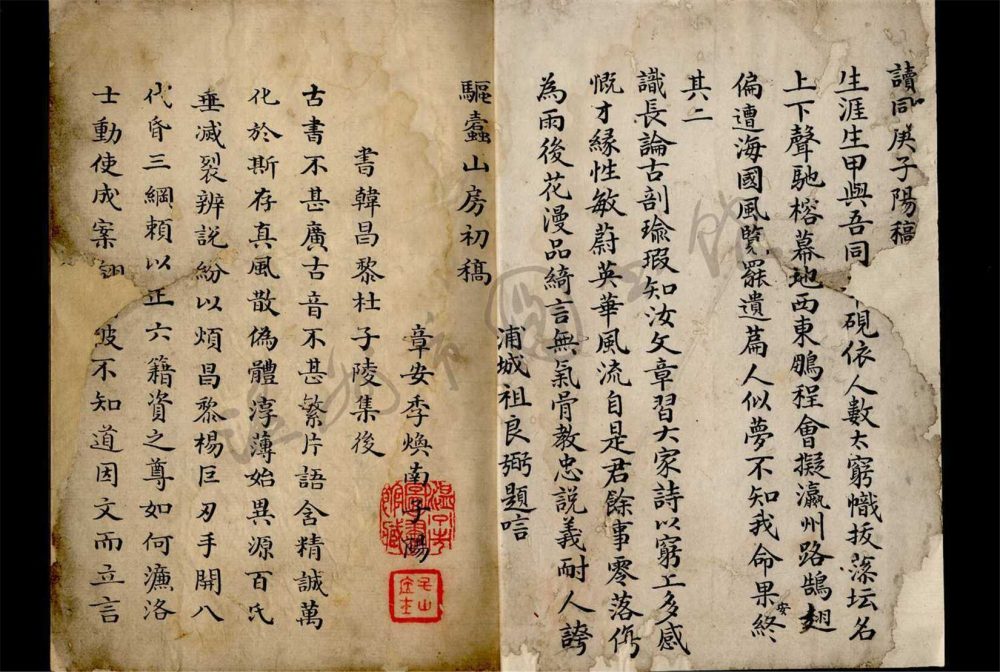 讀同庚子陽稿
生涯生甲與吾同硯依人數太窮幟拔坛名
上下聲馳榕幕地西東鵬程會擬瀛州路鵠翅
偏遭海國風覧罷遺篇人似夢不知我命果安終
其二
識長論古剖瑜瑕知汝文章習大家詩以窮工多感
慨才緣性敏蔚英華風流自是君餘事零落
為雨後花漫品綺言無氣骨教忠説義耐人誇
浦城祖良弼題唁
驅蠹山房初稿
章安季煥南子陽
書韓昌黎杜子陵集後
古書不甚廣古音不甚繁片語舍精誠萬
化於斯存真風散偽體淳薄始異源百氏
垂滅裂辨説紛以煩昌黎楊巨刃手開八
代昏三綱頼以正六籍資之尊如何濂洛
士動使成案彼不知道因文而立言
温州市圖書館藏